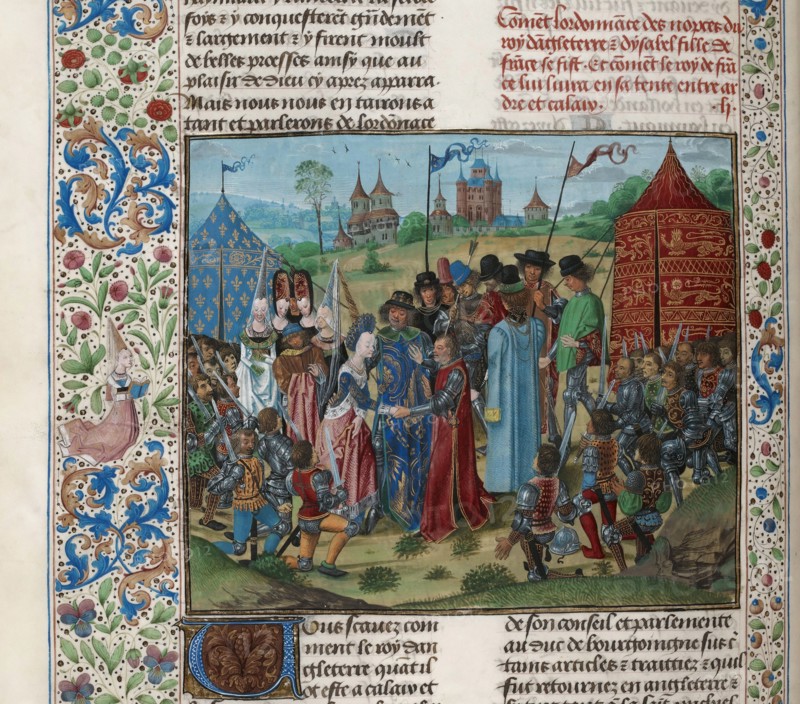 foys et y conquesterẽt grãdemẽt
et largement et y firent moult
de belles proesses ainsy que au
plaisir de dieu cy aprez apparra.
Mais nous nous en tairons a
tant et parlerons de lordõnãce
Comẽt lordonnãce des nopces du
roy dãgleterre et dysabel fille de
frãce se fist. Et comẽt le roy de frã
ce lui livra en sa tente entre ar
dre et calaix.
Vous scavez com
ment le roy dan
gleterre quãt il
ot este a calaix et
de son conseil et parlemente
au duc de bourgoingne sus c̃
tains articles et traittiez et quil
fut retournez en angleterre et